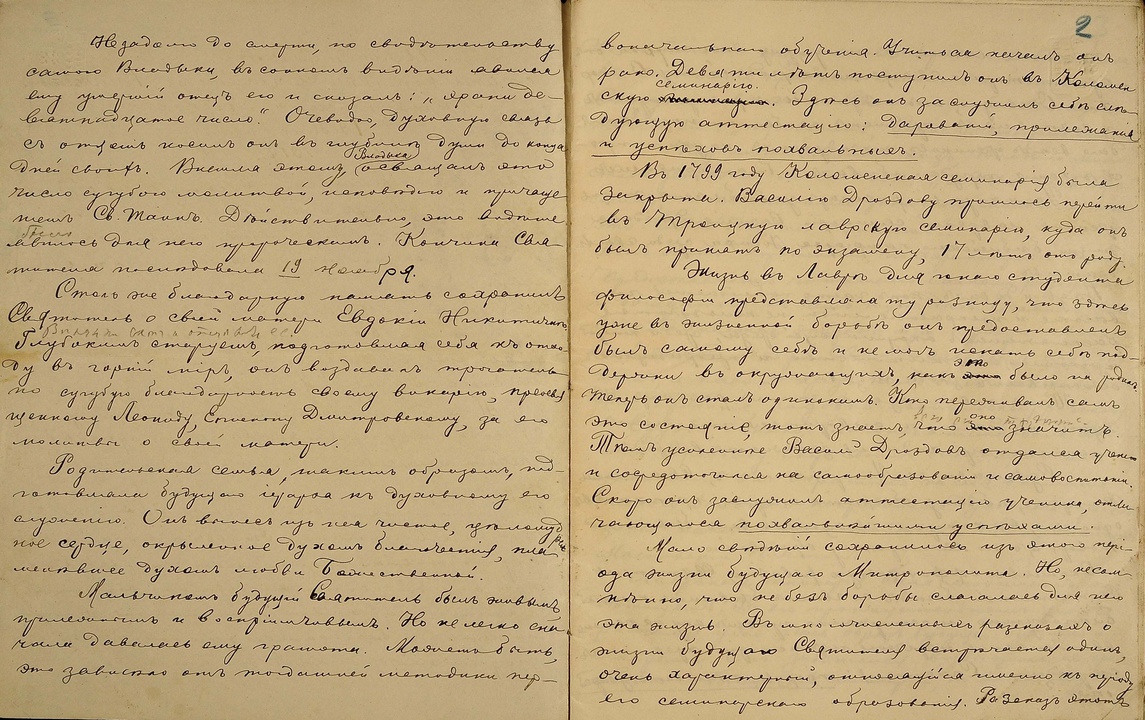 Незадолго до смерти, по свидѣтельству
самого Владыки, въ сонномъ видѣніи явился
ему умершій отецъ его и сказалъ: "храни де-
вятнадцатое число". Очевидно, духовную связь
съ отцемъ носилъ онъ въ глубинѣ души до конца
дней своихъ. Внимая этому, Владыка освящалъ это
число сугубой молитвой, исповѣдью и причаще
ніемъ Св. Таинъ. Дѣйствительно, это видѣніе
явилось для него пророческимъ. Кончина Свя-
тителя послѣдовала 19 ноября.
Столь же благодарную память сохранилъ
Святитель о своей матери Евдокіи Никитичнѣ.
Глубокимъ старцемъ, подготовляя себя къ отхо-
ду въ горній міръ, онъ воздавалъ трогатель-
но сугубую благодарность своему викарію, преосвя
щенному Леониду, Епископу Дмитровскому, за его
молитвы о своей матери.
Родительская семья, такимъ образомъ, под-
готовляла будущаго іерарха къ духовному его
служенію. Онъ вынесъ изъ нея чистое, цѣломудрен
ное сердце, окрыленное духомъ благочестія, пла-
менѣвшее духомъ любви Божественной.
Мальчикомъ будущій Святитель былъ живымъ
прилежнымъ и воспріимчивымъ. Но не легко сна
чала давалась ему грамота. Можетъ быть,
это зависѣло отъ тогдашней методики пер-
2
воначальнаго обученія. Учиться началъ онъ
рано. Девяти лѣтъ поступилъ онъ въ Коломен
семинарію.
скую. Здѣсь онъ заслужилъ себѣ слѣ
дующую аттестацію: дарованій, прилежанія
и успѣховъ похвальныхъ.
Въ 1799 году Коломенская семинарія была
закрыта. Василію Дроздову пришлось перейти
въ Троицкую лаврскую семинарію, куда онъ
былъ принятъ по экзамену, 17 лѣтъ отъ роду.
Жизнь въ Лаврѣ для юнаго студента
философіи представляла ту разницу, что здѣсь
уже въ жизненной борьбѣ онъ предоставленъ
былъ самому себѣ и не могъ искать себѣ под-
это
держки въ окружающихъ, какъ было на родинѣ.
Теперь онъ сталъ одинокимъ. Кто переживалъ самъ
оно
это состояніе, тотъ знаетъ, что значитъ.
Тѣмъ усиленнѣе Василій Дроздовъ отдался ученію
и сосредоточился на самообразованіи и самовоспитаніи.
Скоро онъ заслужилъ аттестацію ученика, отли
чающагося похвальнѣйшими успѣхами.
Мало свѣдѣній сохранилось изъ этого пері-
ода жизни будущаго Митрополита. Но, несом
нѣнно, что не безъ борьбы слагалась для него
эта жизнь. Въ многочисленныхъ разсказахъ о
жизни будущаго Святителя встрѣчается одинъ,
очень характерный, относящійся именно къ періоду
его семинарскаго образованія. Разсказъ этотъ